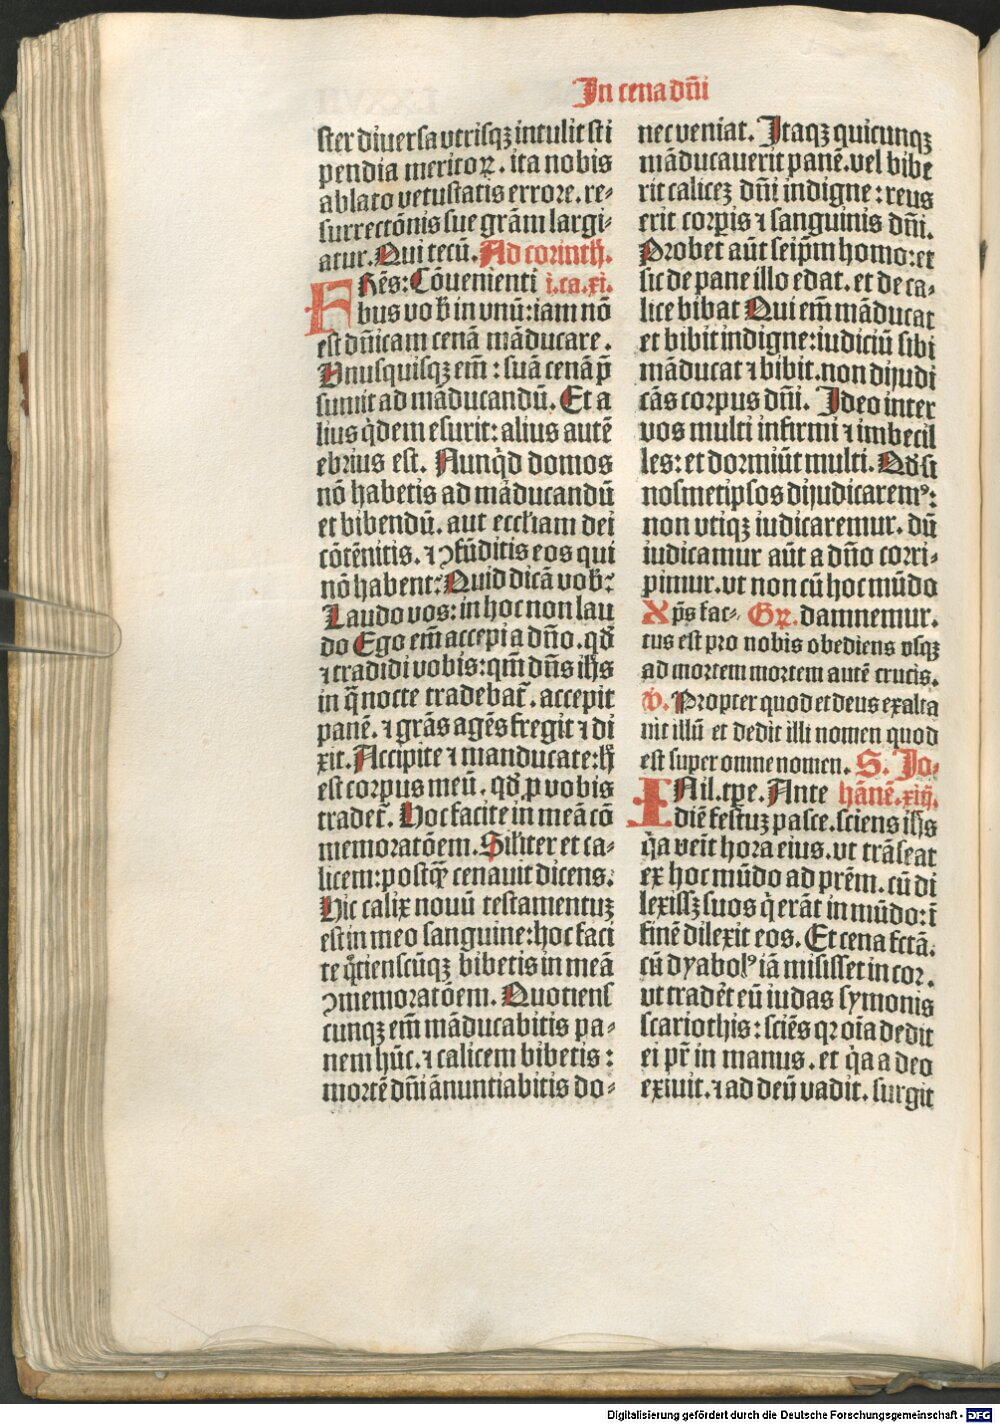 In cena dñi
ster diuersa vtrisqꝫ intulit sti
pendia meritoꝝ. ita nobis
ablato vetustatis errore. re⸗
surrectõnis sue grãm largi⸗
atur. Qui tecũ. Ad corinth.
FRẽs: Cõuenienti i. ca. xi.
bus vob̃ in vnũ: iam nõ
est dñicam cenã mãducare.
Vnusquisqꝫ em̃: suã cenã p̃
sumit ad mãducandũ. Et a
lius q̇dem esurit: alius autẽ
ebrius est. Nunq̇d domos
nõ habetis ad mãducandũ
et bibendũ. aut eccl̃iam dei
cõtẽnitis. ⁊ ꝯfũditis eos qui
nõ habent: Quid dicã vob̃:
Laudo vos: in hoc non lau
do Ego em̃ accepi a dño. qd̃
⁊ tradidi vobis: qm̃ dñs ih̃s
in q̃ nocte tradebat̃. accepit
panẽ. ⁊ grãs agẽs fregit ⁊ di
xit. Accipite ⁊ manducate: h̃
est corpus meũ. qd̃ ꝓ vobis
tradet̃. Hoc facite in meã cõ
memoratõem. Sil̃iter et ca⸗
licem: postq̃ꝫ cenauit dicens.
Hic calix nouũ testamentuꝫ
est in meo sanguine: hoc faci
te q̃tienscũqꝫ bibetis in meã
ꝯmemoratõem. Quotiens
cunqꝫ em̃ mãducabitis pa⸗
nem hũc. ⁊ calicem bibetis:
mortẽ dñi ãnuntiabitis do⸗
nec veniat. Itaqꝫ quicunqꝫ
mãducauerit panẽ. vel bibe
rit caliceꝫ dñi indigne: reus
erit corꝑis ⁊ sanguinis dñi.
Probet aũt seip̃m homo: et
sic de pane illo edat. et de ca⸗
lice bibat Qui em̃ mãducat
et bibit indigne: iudiciũ sibi
mãducat ⁊ bibit. non dijudi
cãs corpus dñi. Ideo inter
vos multi infirmi ⁊ imbecil
les: et dormiũt multi. Qd̃ si
nosmetipsos dijudicaremꝰ:
non vtiqꝫ iudicaremur. dũ
iudicamur aũt a dño corri⸗
pimur. vt non cũ hoc mũdo
Xp̃s fac⸗ Gꝝ. damnemur.
tus est pro nobis obediens vsqꝫ
ad mortem mortem autẽ crucis.
v̉. Propter quod et deus exalta
uit illũ et dedit illi nomen quod
est super omne nomen. S. Jo⸗
INil. tꝑe. Ante hãnẽ. xiij.
diẽ festuꝫ pasce. sciens ih̃s
q̇a veĩt hora eius. vt trãseat
ex hoc mũdo ad pr̃em. cũ di
lexissꝫ suos q̇ erãt in mũdo: ĩ
finẽ dilexit eos. Et cena fctã.
cũ dyabolꝰ iã misisset in cor.
vt tradet̃ eũ iudas symonis
scariothis: sciẽs qꝛ oĩa dedit
ei pr̃ in manus. et q̇a a deo
exiuit. ⁊ ad deũ vadit. surgit
Digitalisierung gefördert durch die Deutsche Forschungsgemeinschaft - DFG